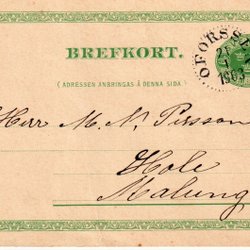 BREFKORT.
(ADRESSEN ANBRINGAS Å DENNA SIDA.)
Herr M. N. Persson
Hole
Malung